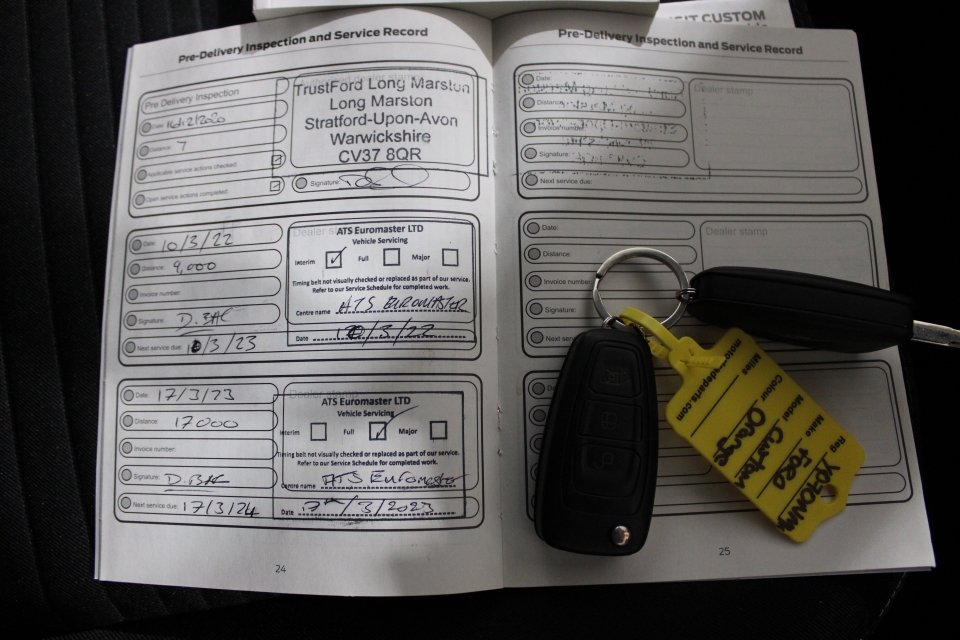 Pre-Delivery Inspection and Service Record
Pre Delivery Inspection
Date: 16/12/2020
Distance: 7
Applicable service actions checked:
Open service actions completed:
Authorised dealer stamp
TrustFord Long Marston
Long Marston
Stratford-Upon-Avon
Warwickshire
CV37 8QR
Signature:
Date: 10/3/22
Distance: 9,000
Invoice number:
Signature: D.BAC
Next service due: 10/3/23
Dealer stamp
ATS Euromaster LTD
Vehicle Servicing
Interim ✓ Full Major
Timing belt not visually checked or replaced as part of our service.
Refer to our Service Schedule for completed work.
Centre name ATS EUROMASTER
Date 10/3/22
Date: 17/3/23
Distance: 17000
Invoice number:
Signature: D.BAC
Next service due: 17/3/24
Dealer stamp
ATS Euromaster LTD
Vehicle Servicing
Interim Full ✓ Major
Timing belt not visually checked or replaced as part of our service.
Refer to our Service Schedule for completed work.
Centre name ATS Euromaster
Date 17/3/2023
24
SIT CUSTOM
Pre-Delivery Inspection and Service Record
Date:
Distance:
Invoice number:
Signature:
Next service due:
Dealer stamp
Date:
Distance:
Invoice number
Signature:
Next serv
Dealer stamp
Da
25
Reg
Make Ford
Model Custom
Colour Orange
Miles